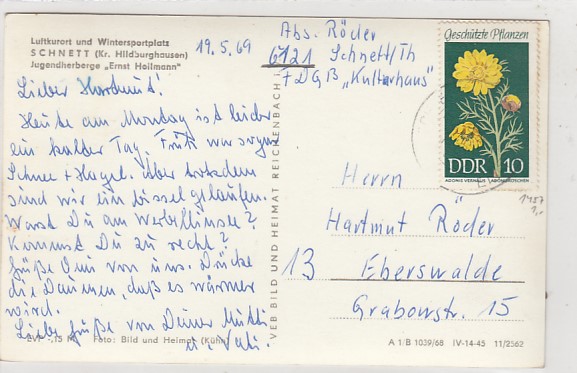 Luftkurort und Wintersportplatz
SCHNETT (Kr. Hildburghausen)
Jugendherberge „Ernst Heilmann"
19.5.69
Abs. Röder
6121 Schnett/Th
FDGB „Kulturhaus"
Geschützte Pflanzen
DDR 10
ADONIS VERNALIS · ADONISRÖSCHEN
Lieber Hartmut!
Heute am Montag ist leider
ein kalter Tag. Früh war sogar
Schnee + Hagel. Aber trotzdem
sind wir ein bissel gelaufen.
Warst Du am Werbellinsee?
Kommst Du zu recht?
Grüße Omi von uns. Drücke
die Daumen, daß es wärmer
wird.
Liebe Grüße von Deiner Mutti
u. Vati.
EVP -,15 M Foto: Bild und Heimat (Kühn)
VEB BILD UND HEIMAT REICHENBACH i.
Herrn
Hartmut Röder
13 Eberswalde
Grabowstr. 15
A 1/B 1039/68 IV-14-45 11/2562